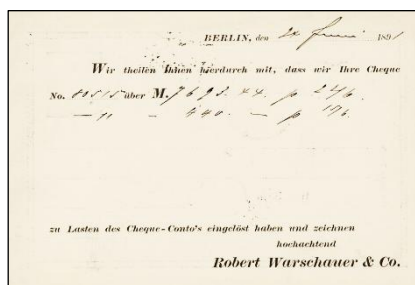 BERLIN, den 24 Juni 1891
Wir theilen Ihnen hierdurch mit, dass wir Ihre Cheque
No. 80515 über M. 7693. 44. p 24/6.
— 11 - 440. — p 17/6.
zu Lasten des Cheque-Conto's eingelöst haben und zeichnen
hochachtend
Robert Warschauer & Co.